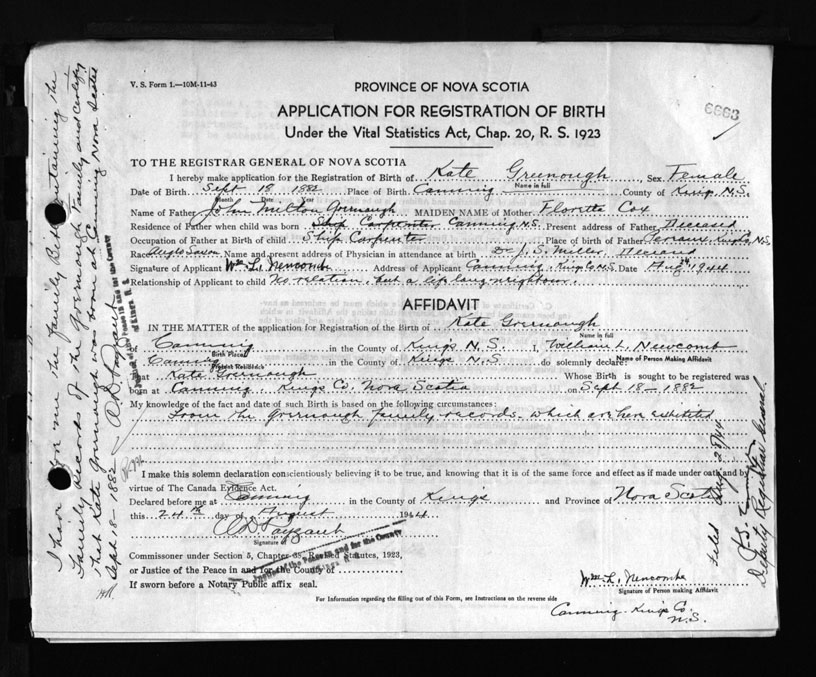 V. S. Form 1.—10M-11-43
PROVINCE OF NOVA SCOTIA
6663
APPLICATION FOR REGISTRATION OF BIRTH
Under the Vital Statistics Act, Chap. 20, R. S. 1923
TO THE REGISTRAR GENERAL OF NOVA SCOTIA
I hereby make application for the Registration of Birth of Kate Greenough, Sex Female
Name in full
Date of Birth Sept 18 1882 Place of Birth Canning County of Kings N.S.
Month Date Year
Name of Father John Milton Greenough MAIDEN NAME of Mother Floretta Cox
Residence of Father when child was born Ship Carpenter Canning N.S. Present address of Father Deceased
Occupation of Father at Birth of child Ship Carpenter Place of birth of Father Kings Co N.S.
Race Anglo Saxon Name and present address of Physician in attendance at birth Dr J. S. Miller Deceased
Signature of Applicant Wm L. Newcombe Address of Applicant Canning, Kings N.S. Date Aug 24 1944
Relationship of Applicant to child No relation, but a life long neighbour.
AFFIDAVIT
IN THE MATTER of the application for Registration of the Birth of Kate Greenough
Name in full
of Canning in the County of Kings N. S. I, William L. Newcomb
Birth Place
Name of Person Making Affidavit
of Canning in the County of Kings N.S do solemnly declare:
Present Residence
That Kate Greenough Whose Birth is sought to be registered was
born at Canning, Kings Co, Nova Scotia on Sept 18 - 1882
My knowledge of the fact and date of such Birth is based on the following circumstances:
From the Greenough family records, which are here exhibited
I make this solemn declaration conscientiously believing it to be true, and knowing that it is of the same force and effect as if made under oath and by
virtue of The Canada Evidence Act.
Declared before me at Canning in the County of Kings and Province of Nova Scotia
this 24th day of August 1944
Signature of
Commissioner under Section 5, Chapter 38, Revised Statutes, 1923,
or Justice of the Peace in and for the County of
Justice of the Peace in and for the County
of Kings N. S.
If sworn before a Notary Public affix seal.
For Information regarding the filling out of this Form, see Instructions on the reverse side
Wm L. Newcombe
Signature of Person making Affidavit
Canning Kings Co.
N.S.
I have before me the family Bible containing the
Family Records of the Greenough Family and certify
that Kate Greenough was born at Canning Nova Scotia
Sept 18 - 1882
Justice of the Peace in and for the County
of Kings N. S.
Filed Aug 28/44
Deputy Registrar General